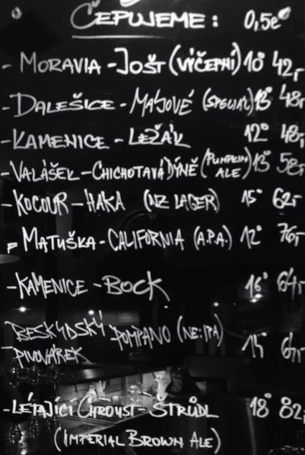 ČEPUJEME: 0,5l
- MORAVIA-JOŠT (VÝČEPNÍ) 10° 42,-
- DALEŠICE - MÁJOVÉ (SPECIÁL) 13° 48,-
- KAMENICE - LEŽÁK 12° 48,-
- VALÁŠEK-CHICHOTAVÁ DÝNĚ (PUMPKIN ALE) 13° 58,-
- KOCOUR-HAKA (NZ LAGER) 15° 62,-
MATUŠKA-CALIFORNIA (A.P.A.) 12° 76,-
- KAMENICE-BOCK 16° 64,-
BESKYDSKÝ PIVOVÁREK POMPANO (NE:IPA) 14
- LÉTAJÍCÍ CHROUST-ŠTRŮDL 18° 82,-
(IMPERIAL BROWN ALE)